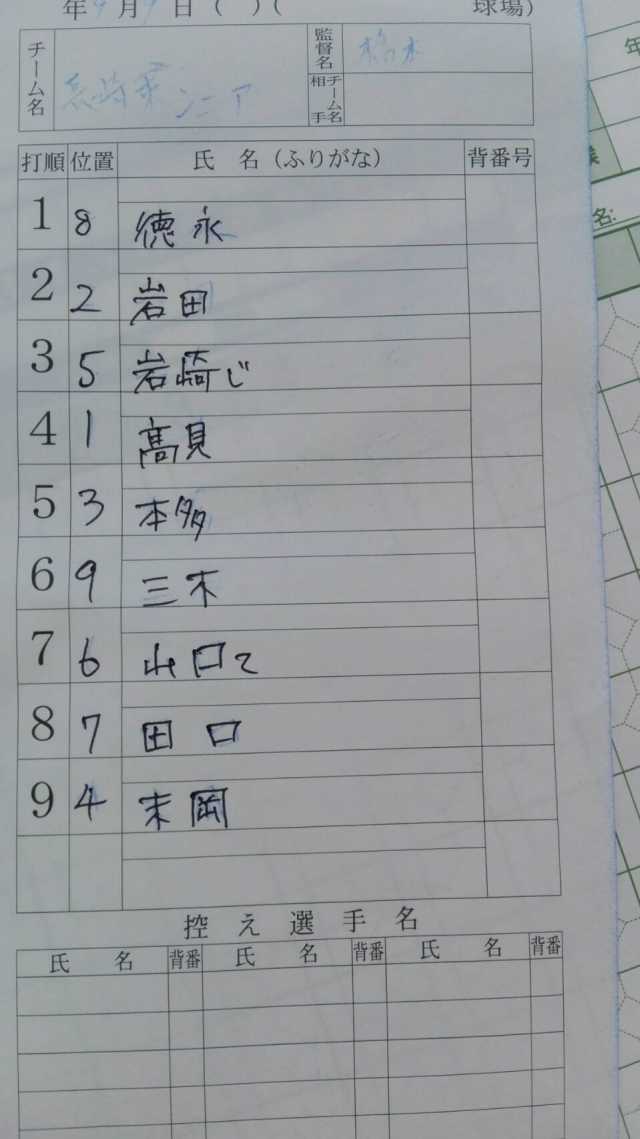 年 9 月 9 日 ( ) ( 球場)
チーム名 長崎東シニア 監督名
相手チーム名
打順 位置 氏 名 (ふりがな) 背番号
1 8 徳永
2 2 岩田
3 5 岩崎じ
4 1 高見
5 3 本多
6 9 三木
7 6 山口て
8 7 田口
9 4 末岡
控え選手名
氏 名 背番 氏 名 背番 氏 名 背番
年
名: